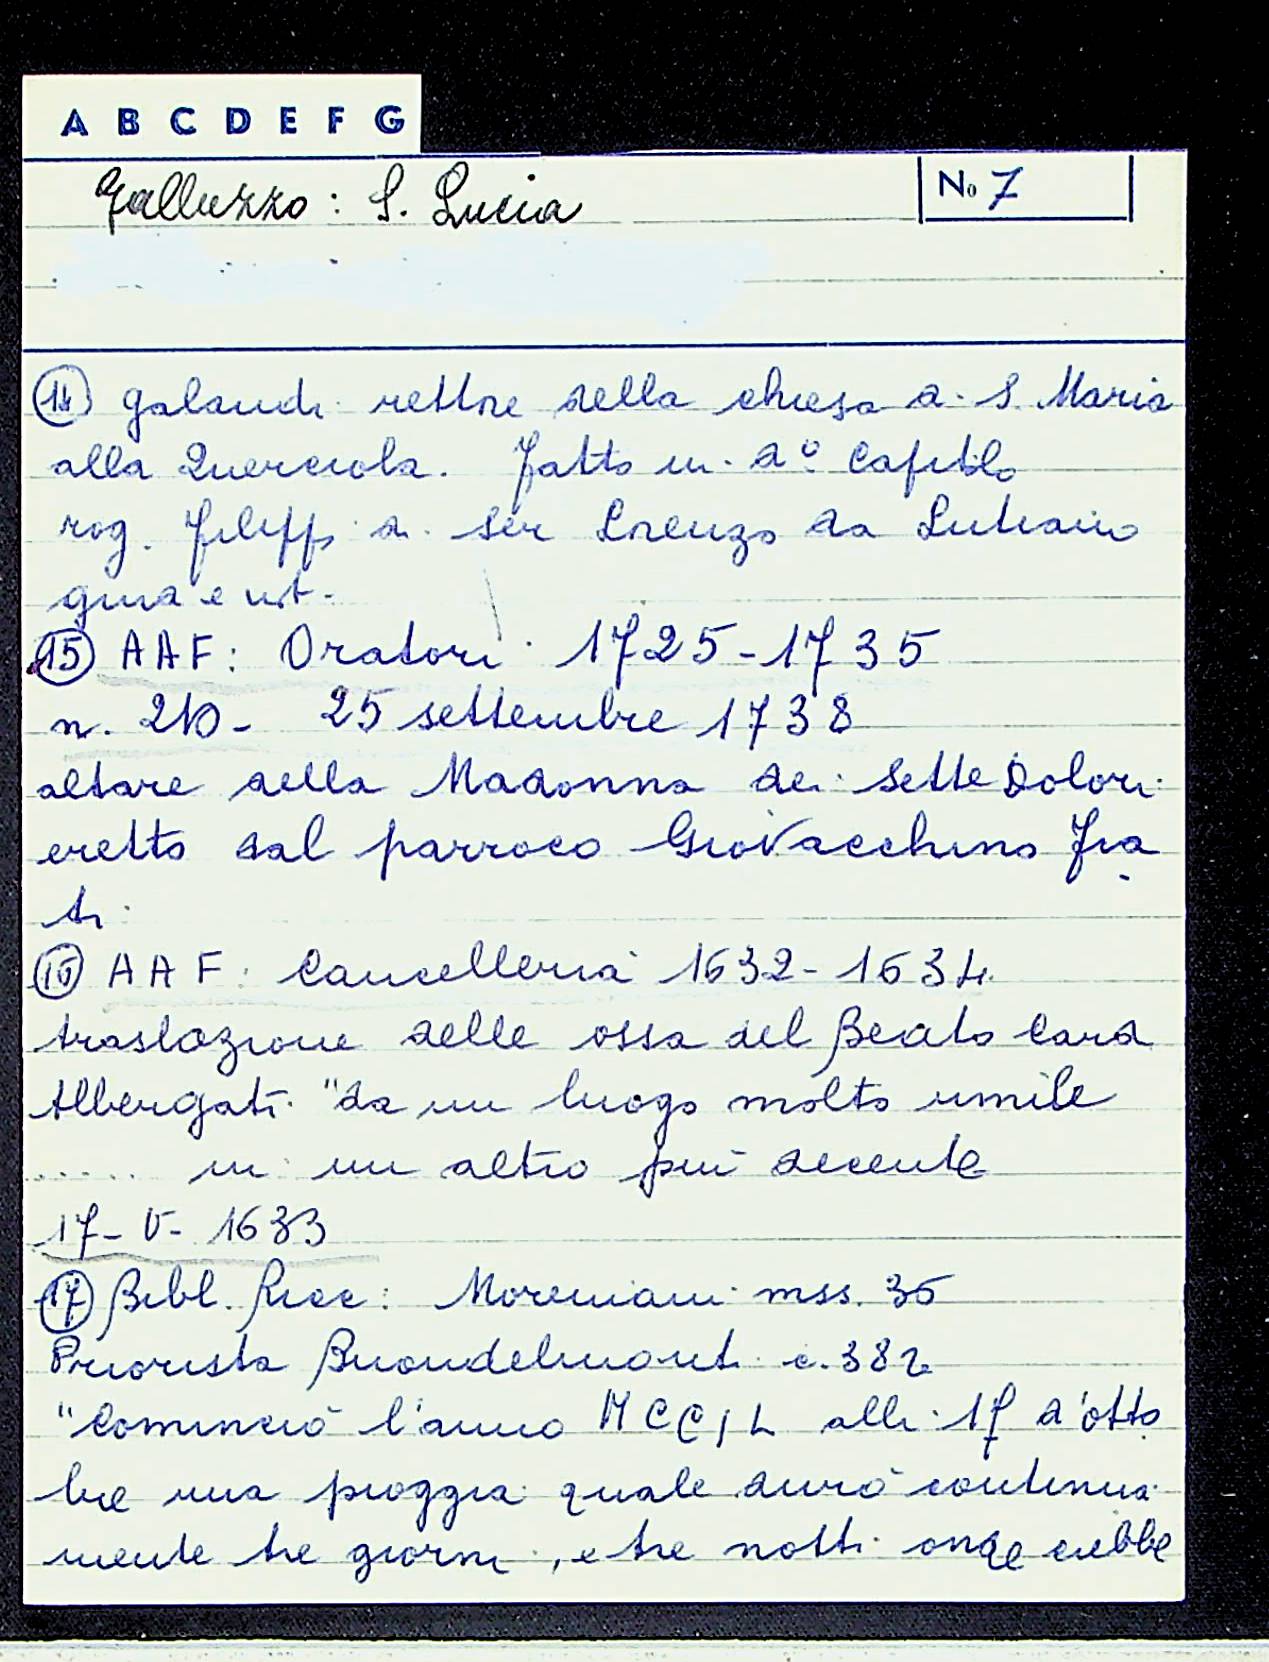 A B C D E F G
Galluzzo: S. Lucia
No 7
14 galandi rettore della chiesa d. S. Maria
alla Querciola. Fatto in. d.º Capitolo
rog. Filipp. d. Ser Lorenzo da Lutiano
15 AAF: Oratori 1725-1735
n. 210- 25 settembre 1738
altare della Madonna dei Sette Dolori
eretto dal parroco Giovacchino Fra
ti
16 AAF: Cancelleria 1632-1634
traslazione delle ossa del Beato Card
Albergati "da un luogo molto umile
..... in un altro più decente
17-V-1633
17 Bibl. Ricc: Moreniani mss. 36
Priorista Buondelmonti c. 382
"Cominciò l'anno alli 17 d'otto
bre una pioggia quale durò continua
mente tre giorni, e tre notti onde crebbe